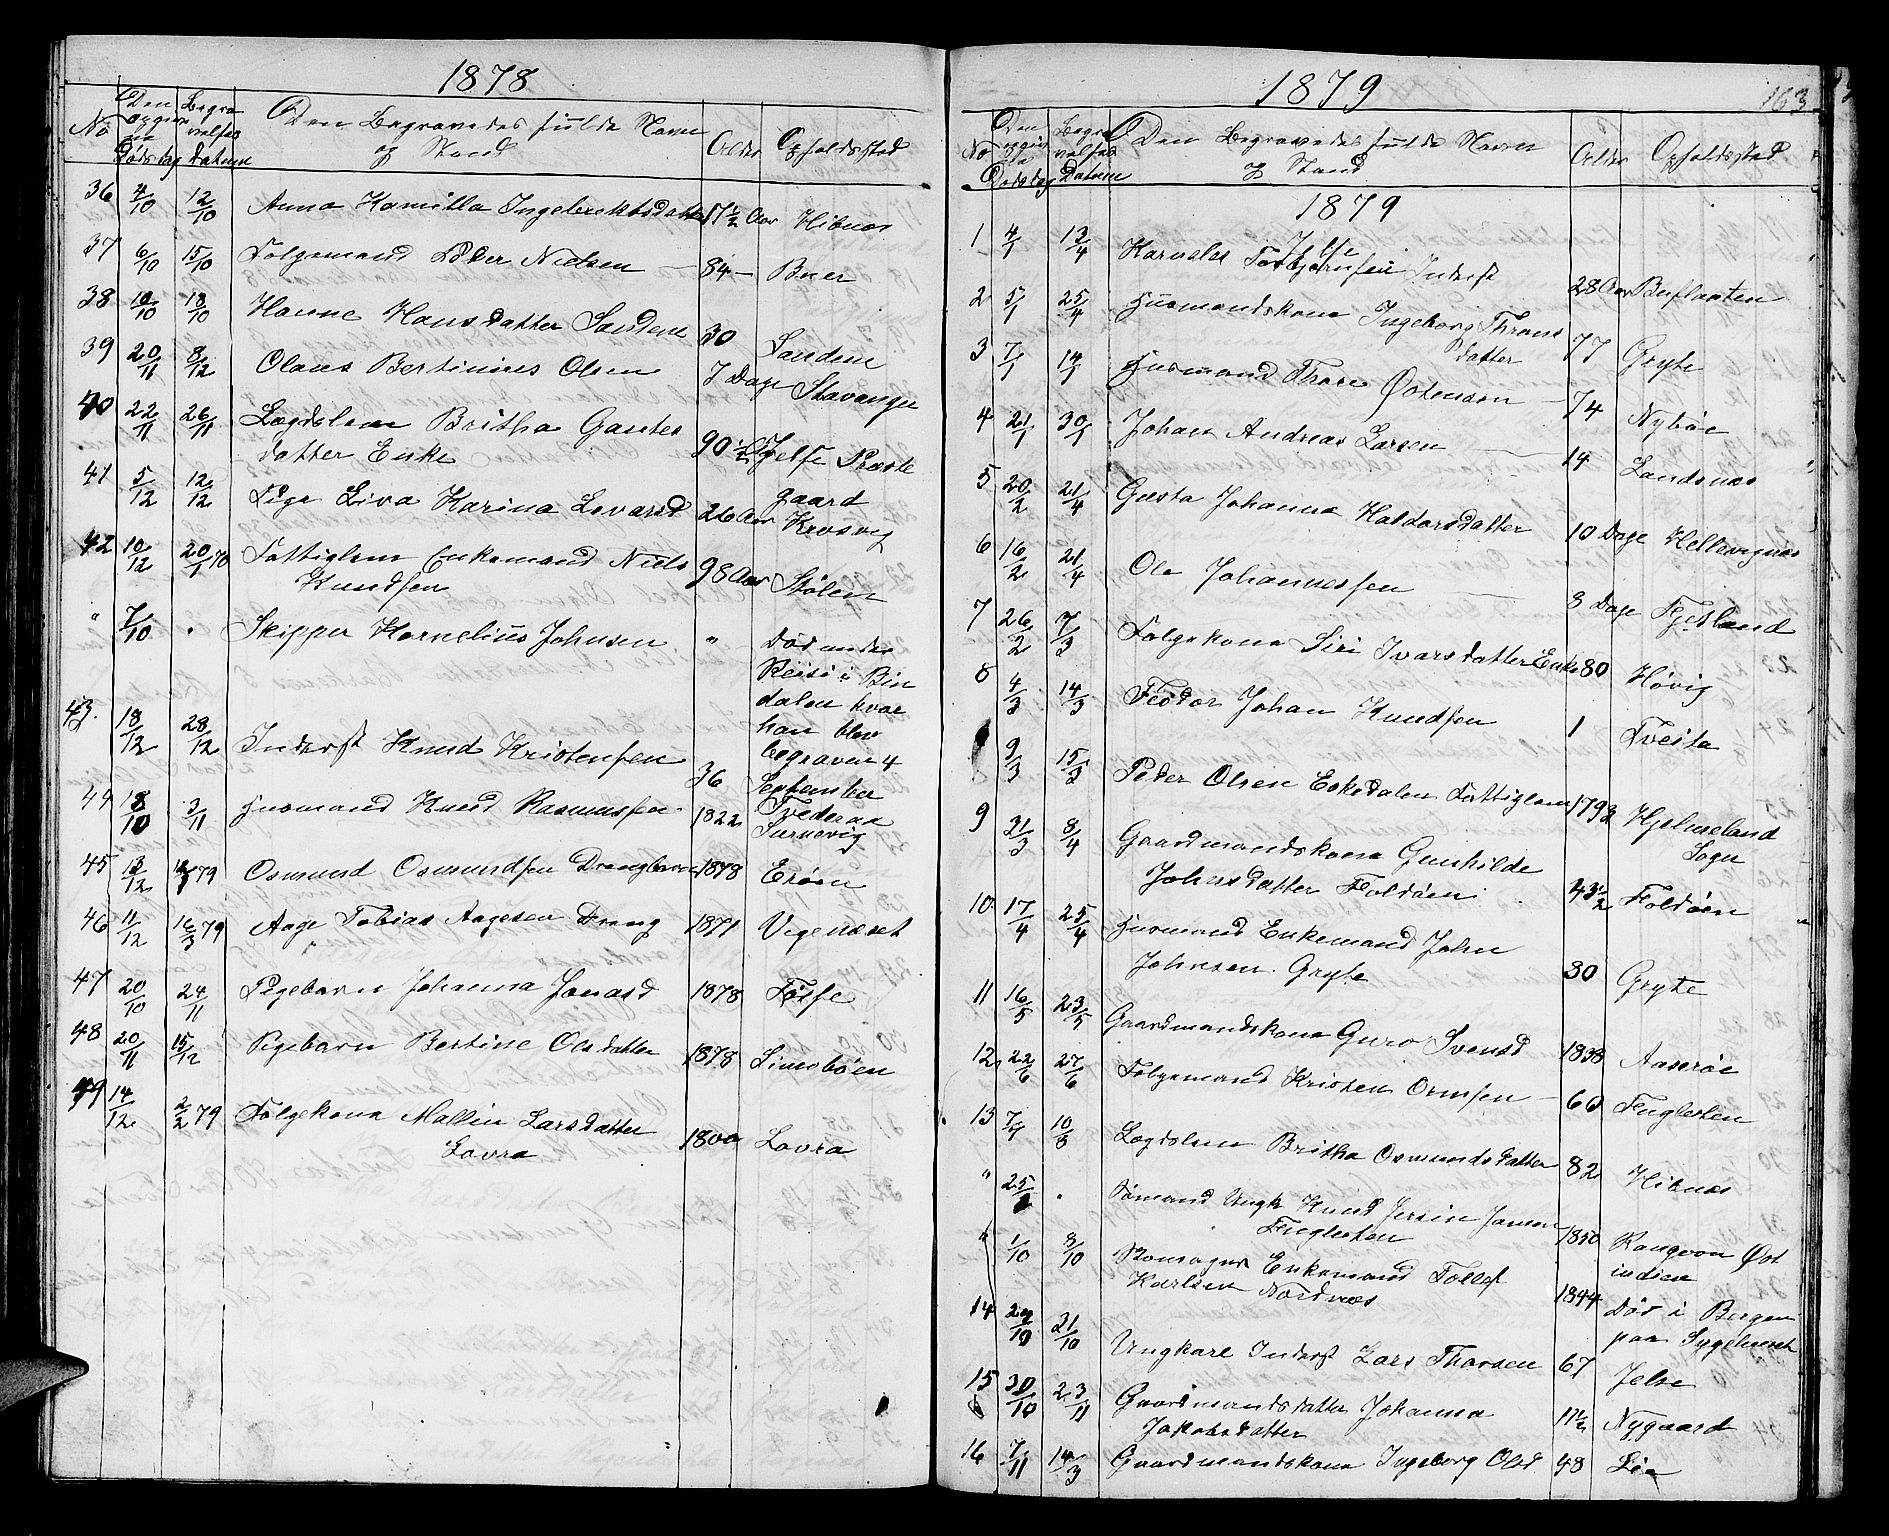 1878
No Den opgivne Dødsdag Begravelses datum Den Begravedes fulde Navn og Stand Alder Opholdssted
36 4/10 12/10 Anna Kamilla Ingebrektsdatter 17½ Aar Hibnæs
37 6/10 15/10 Folgemand Peder Nielsen — 84 — Buer
38 10/10 18/10 Hanne Hansdatter Sandene 30 Sandene
39 20/11 8/12 Olaus Bertinius Olsen 7 Dage Stavanger
40 22/11 26/11 Lægdslem Britha Gautes
datter Enke 90½ Jelse Præste
gaard
41 5/12 12/12 Pige Liva Karina Lovarsd 26 Aar Krosvig
42 10/12 20/1 78 Fattiglem Enkemand Niels
Knudsen 98 Aar Stølen
" 7/10 " Skipper Kornelius Johnsen " Død under
Reise i Bin
dalen hvor
han blev
begraven 4
September
43. 18/12 28/12 Inderst Knud Kristensen 36 Tvederaa
44 18/10 3/11 Husmand Knud Rasmussen 1822 Surnevig
45 13/12 79 Osmund Osmundsen Drengbarn 1878 Erøen
46 11/12 16/3 79 Aage Tobias Aagesen Dreng 1871 Vigenæset
47 20/10 24/11 Pigebarn Johanna Jonasd 1878 Folse
48 20/11 15/12 Pigebarn Bertine Olsdatter 1878 Limobøen
49 14/12 2/2 79 Folgekona Mallin Larsdatter
Lovra 1800 Lovra
1879
163
No Den opgivne Dødsdag Begravelses Datum Den Begravedes fulde Navn og Stand Alder Opholdssted
1879
1 4/1 13/4 Karneles Torbjørnsen Inderst 28 Aar Buflaaten
2 5/1 25/4 Husmandskona Ingeborg Throns
datter 77 Gryte
3 7/1 14/1 Husmand Thore Østensen — 74 Nybøe
4 21/1 30/1 Johan Andreas Larsen — 14 Landsnæs
5 20/2 21/4 Gusta Johanna Haldorsdatter 10 Dage Hellevignæs
6 16/2 21/4 Ole Johannessen — 8 Dage Fjetland
7 26/2 7/3 Folgekona Siri Ivarsdatter Enke 80 Høvig
8 4/3 14/3 Feodor Johan Knudsen 1 Tveita
9/3 15/3 Peder Olsen Eskedalen Fattiglem 1793 Hjelmeland
Sogn
9 31/3 8/4 Gaardmandskona Gunhilde
Johnsdatter Foldøen 43½ Foldøen
10 17/4 25/4 Husmand Enkemand John
Johnsen. Gryte 30 Gryte
11 16/5 23/5 Gaardmandskona Guro Svensd 1838 Aaserøe
12 22/6 27/6 Folgemand Kristen Ormsen — 60 Fuglesten
13 7/7 10/8 Lægdslem Britha Osmundsdatter 82 Hibnæs
" 25/ " Sømand Ungk Knud Jersin Jansen
Fuglesten 1850 Rangoon Øst
indien
" 1/10 8/10 Enkemand Tollef
Karlsen Nordnæs 1844 Død i Bergen
paa Sygehuset
14 21/10 Ungkarl Inderst Lars Thorsen 67 Jelse
15 30/10 23/11 Gaardmandsdatter Johanna
Jakobsdatter 11½ Nygaard
16 7/11 14/3 Gaardmandskona Ingeborg Olsd 48 Lie